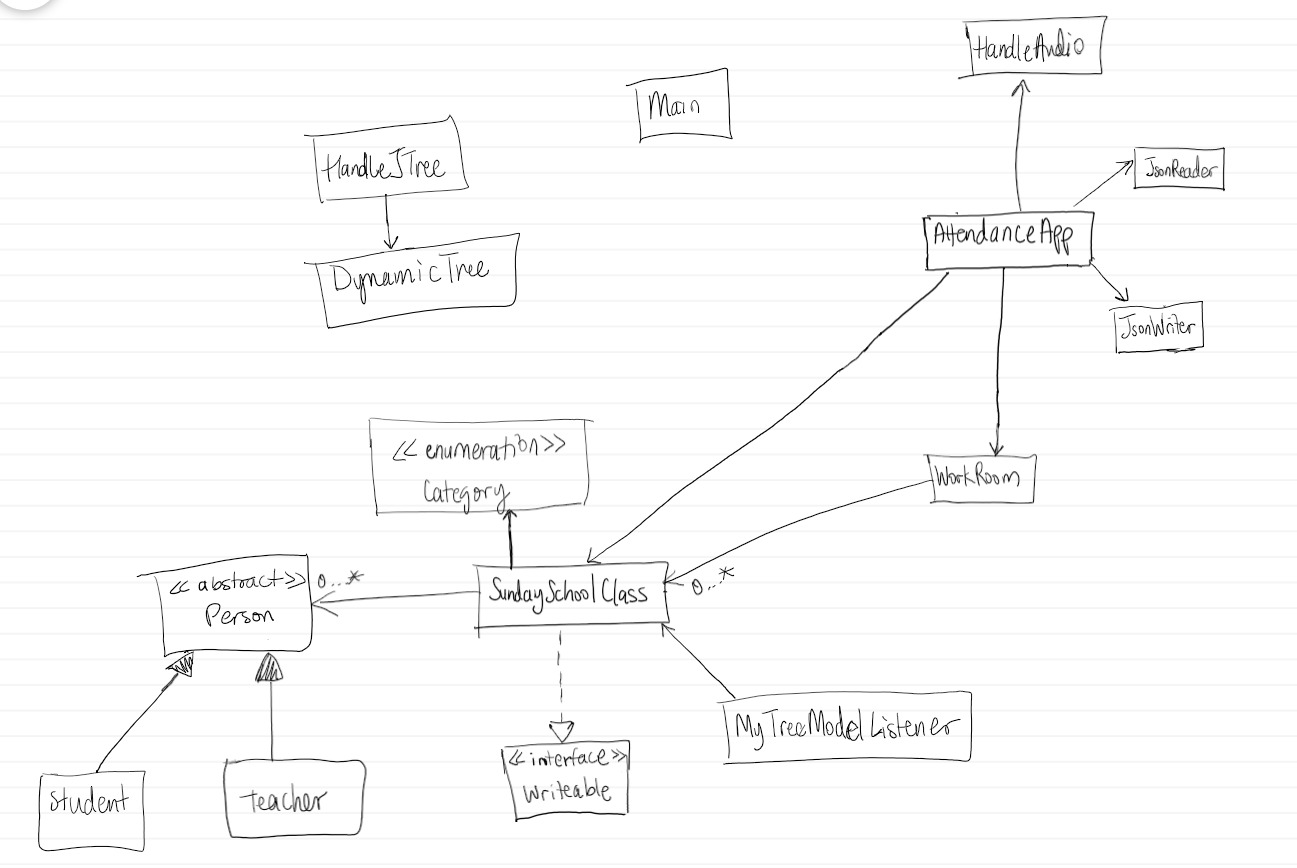 HandleAudio
Main
HandleJTree
JsonReader
AttendanceApp
DynamicTree
JsonWriter
<< enumeration >>
Category
WorkRoom
<< abstract >>
Person
0..*
SundaySchoolClass
0..*
MyTreeModelListener
<< interface >>
Writeable
Student
Teacher